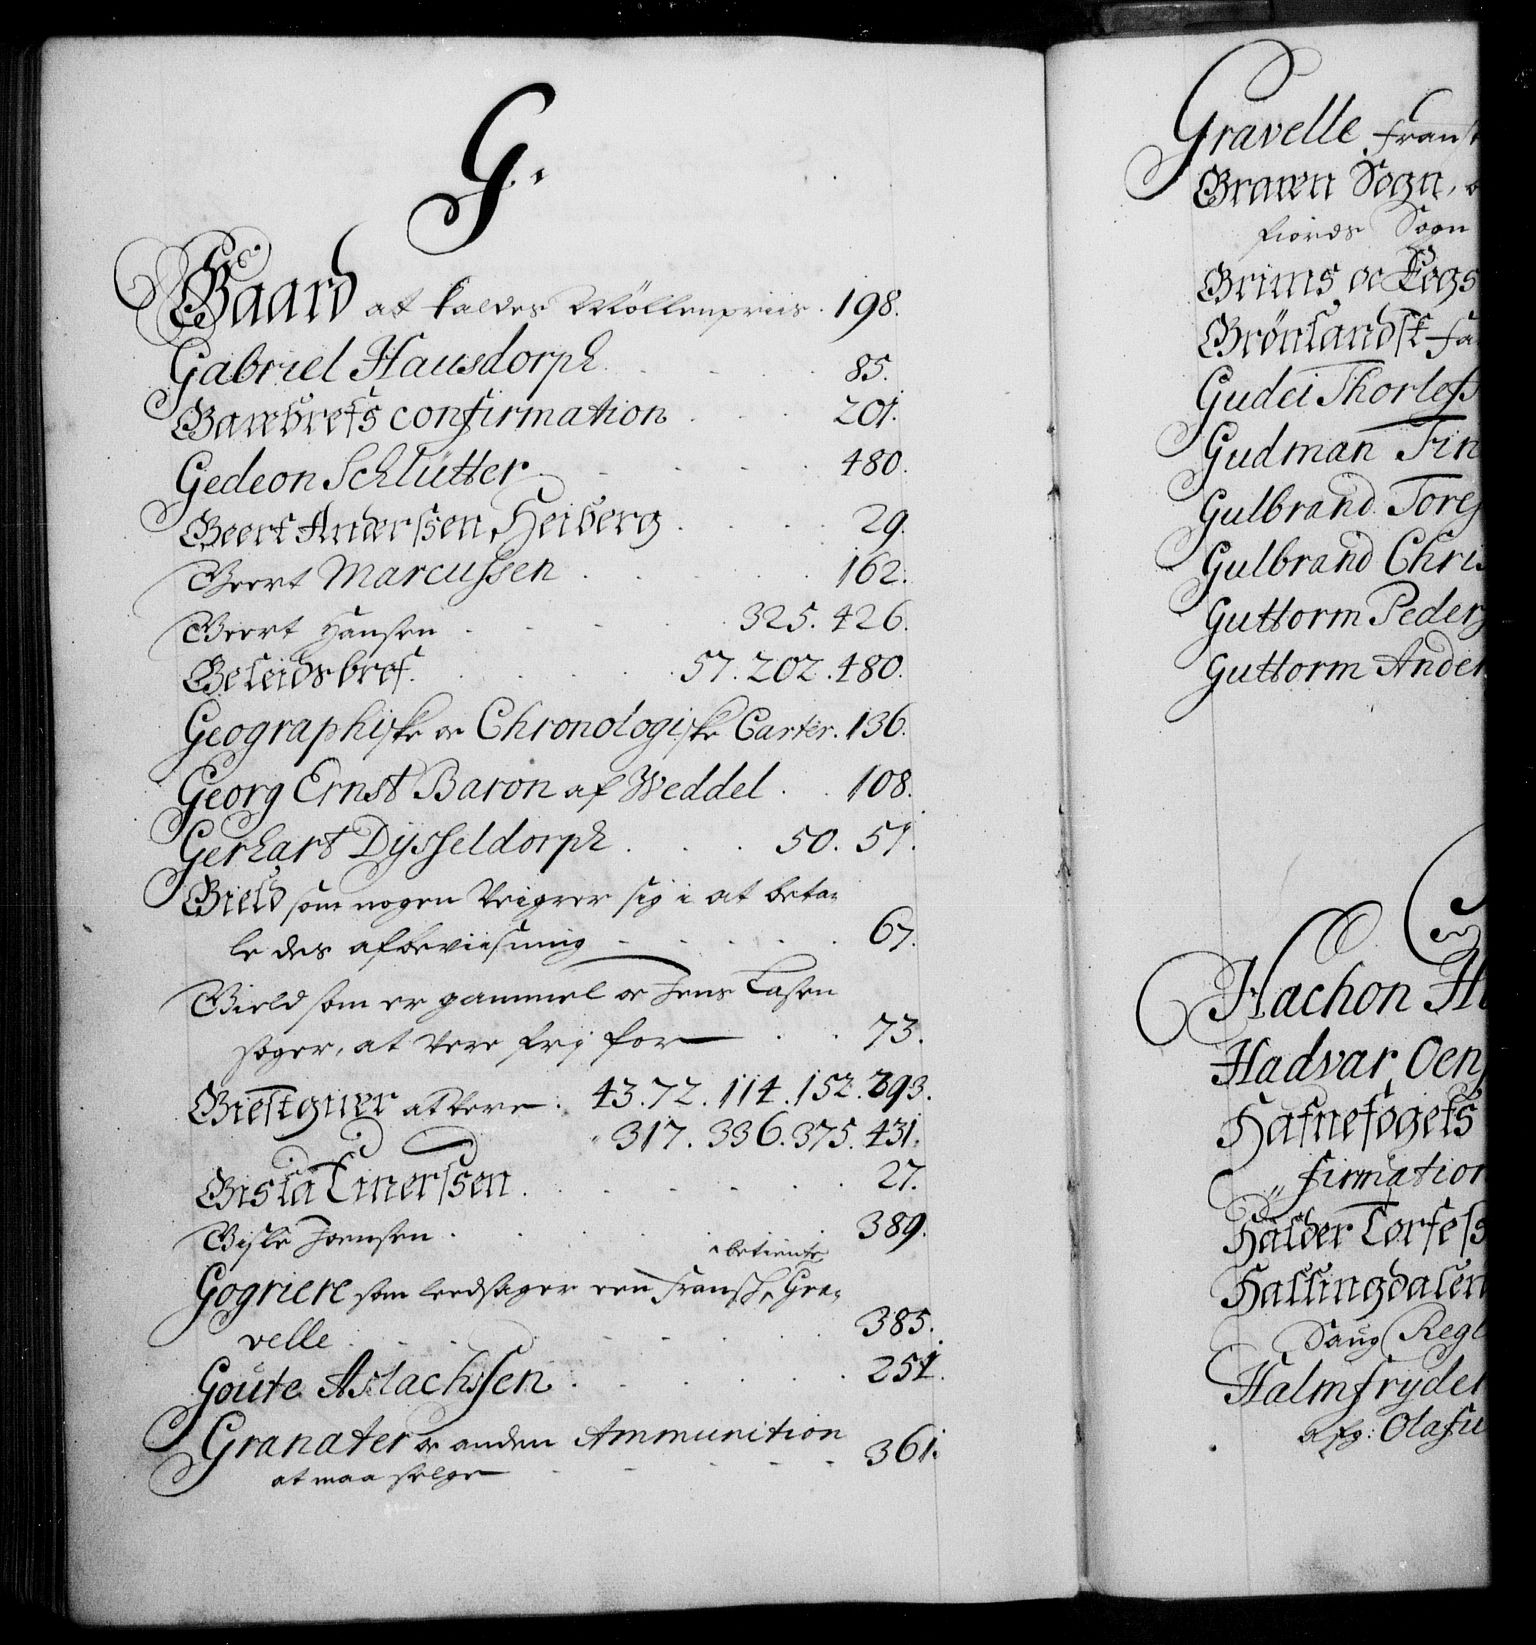 G.
Gaard at kaldes Møllenpriis. 198.
Gabriel Hausdorph. 85.
Gavebrefs confirmation 201.
Gedeon Schlütter 480.
Geert Anderssen Heiberg 29.
Geert Marcussen 162.
Geert Hansen 325. 426.
Geleidsbref. 57. 202. 480.
Geographiske oc Chronologiske Carter. 136.
Georg Ernst Baron af Weddel 108.
Gerhart Dysseldorph 50. 51.
Gield som nogen Veigrer sig i at beta-
le des afbeviisning 67.
Gield som er gammel oc Jens Lasen
søger, at vere frj for 73.
Giestguer at vere. 43. 72. 114. 152. 293.
317. 336. 375. 431.
Gisla Einerssen. 27.
Gisle Joensen 389.
betiente
Gogriere som ledsager een Fransk Gra-
velle 385.
Goute Aslachssen 251.
Granater oc anden Ammunition 361.
at maa selge
Gravelle Fransk
Graven Sogn,
fiords Sogn
Grims oc Logs
Grønlandsk Fa
Gudei Thorlefs
Gudman Fin
Gulbrand Tores
Gulbrand Chris
Guttorm Peders
Guttorm Anders
Hachon H
Hadvar Oen
Hafnefogets
firmation
Halder Torfess
Hallingdalen
Saug Regl
Halmfryder
afg: Olafu